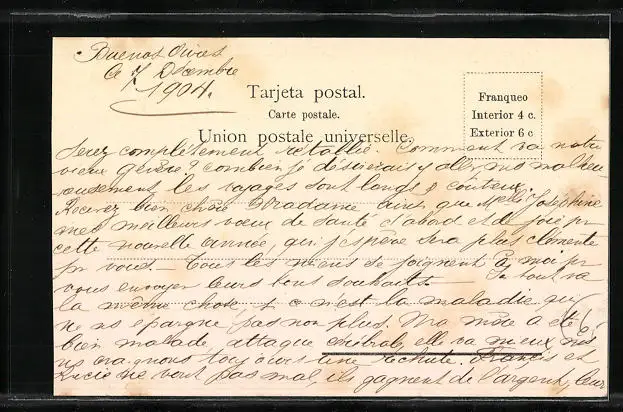 Buenos Aires
le 7 Décembre
1904.
Tarjeta postal.
Carte postale.
Union postale universelle.
Franqueo
Interior 4 c.
Exterior 6 c
Serez complètement rétablie. Comment va notre
vieux ? combien je désirerais y aller, mais malheu-
reusement les voyages sont longs & coûteux.
Recevez bien chère Madame ainsi que Melle Joséphine
mes meilleurs vœux de santé d'abord et de joie pr
cette nouvelle année, qui j'espère sera plus clémente
pr vous. — Tous les miens se joignent à moi pr
vous envoyer leurs bons souhaits — Ici tout va
la même chose, & c'est la maladie qui
ne ns épargne pas non plus. Ma mère a été
bien malade, attaque, elle va mieux, mais
ns craignons toujours une rechute. François et
Lucie ne vont pas mal, ils gagnent de l'argent, leur